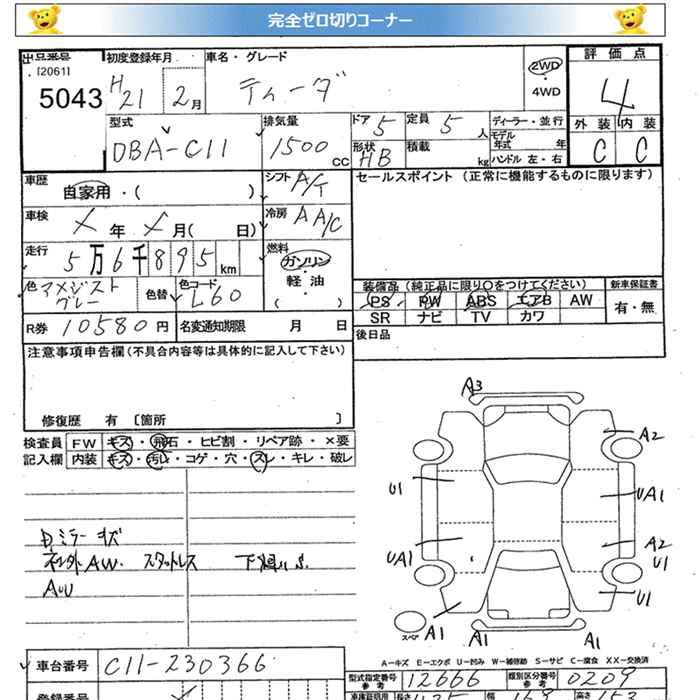 完全ゼロ切りコーナー
出品番号 初度登録年月 車名・グレード 2WD・4WD 評価点
[2061] 5043 H21 2月 ティーダ 4
型式 排気量 ドア 5 定員 5人 ディーラー・並行 外装 内装
DBA-C11 1500cc 形状 HB 積載 kg モデル年式 年 C C
ハンドル 左・右
車歴 自家用・( ) シフト A/T セールスポイント (正常に機能するものに限ります)
車検 メ年 メ月( 日) 冷房 AA/C
走行 5万6千895km 燃料 ガソリン・軽油 ( )
色 アメジストグレー 色替 色コード L60 装備品 (純正品に限り○をつけてください) 新車保証書
PS PW ABS エアB AW 有・無
SR ナビ TV カワ
R券 10580円 名変通知期限 月 日 後日品
注意事項申告欄(不具合内容等は具体的に記入して下さい)
修復歴 有 [箇所 ]
検査員記入欄 FW キズ・飛石・ヒビ割・リペア跡・×要
内装 キズ・汚レ・コゲ・穴・スレ・キレ・破レ
A3
A2
U1
UA1
UA1
A2
U1
U1
スペア A1 A1 A1
Dミラーキズ
AW. スタットレス
AUU
A-キズ E-エクボ U-凹み W-補修跡 S-サビ C-腐食 XX-交換済
車台番号 C11-230366 型式指定番号 参考 12666 類別区分番号 参考 0209
登録番号 車庫証明用 長さ 幅 169 高さ 153